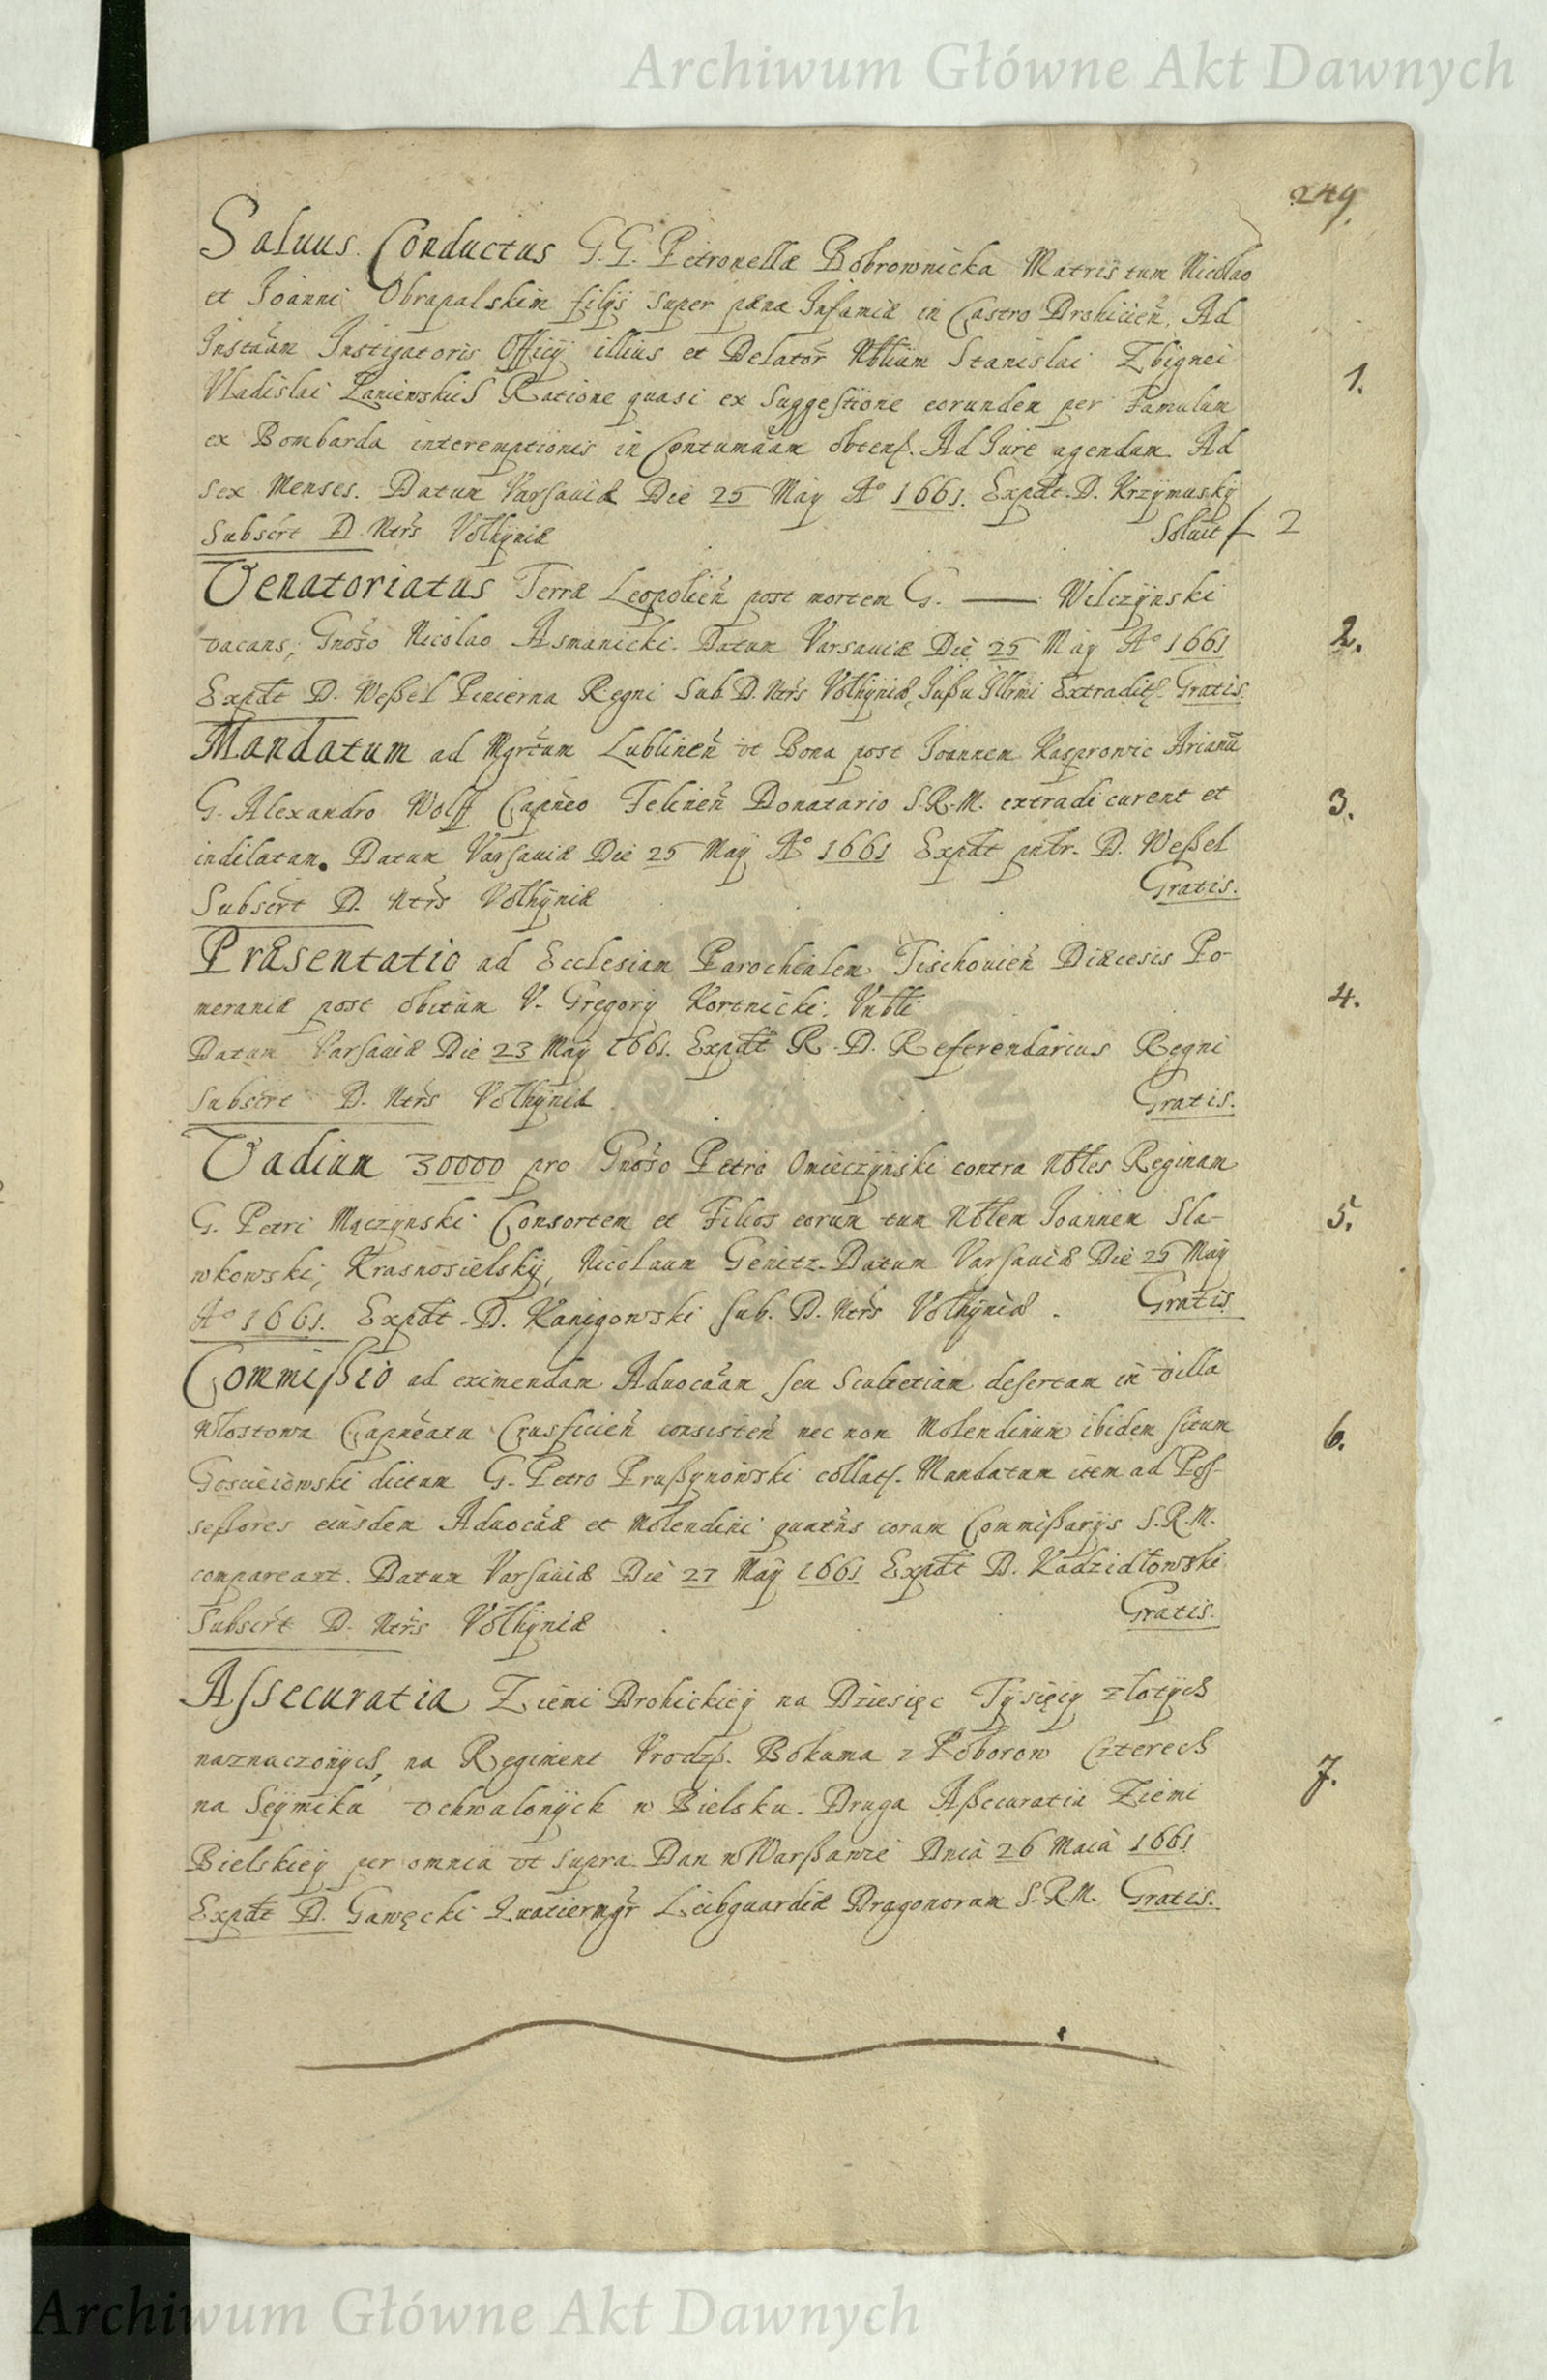 Archiwum Główne Akt Dawnych
249.
Saluus Conductus G.G. Petronellæ Bobrownicka Matri tum Nicolao
et Joanni Obrapalskim filijs super pæna Infamiæ in Castro Drohicień. Ad
Instãam Instigatoris Officij illius et Delator Nbliũm Stanislai Zbignei
Vladislai Łaniewskich Ratione quasi ex suggestione eorunden per Famulum
1.
ex Bombarda interemptionis in Contumãam obtent. Ad Jure agendum. Ad
sex Menses. Datum Varsauiæ Die 25 Maij Ao 1661. Expdt. D. Krzymusky
Subscrt D. Ntrs Volhyniæ Soluit f 2
Venatoriatus Terræ Leopolień post mortem G. —— Wilczynski
vacans, Gnoso Nicolao Asmanicki. Datum Varsauiæ Die 25 Maij Ao 1661
2.
Expdt D. Weßel Pincerna Regni Sub. D. Ntrs Volhyniæ, Jußu Illrmi Extradit. Gratis.
Mandatum ad Mgrtum Lublineń vt Bona post Joannem Kasprowic Arianũ
G. Alexandro Wolff Capneo Felineń Donatario S.R.M. extradi curent et
3.
indilatam. Datum Varsauiæ Die 25 Maij Ao 1661 Expdt pntr. D. Weßel
Subscrt D. Ntrs Volhyniæ Gratis.
Præsentatio ad Ecclesiam Parochialem Tischouień Diæcesis Po-
meraniæ post obitum V. Gregorij Kortnicki. Vnbli
4.
Datum Varsauiæ Die 23 Maij 1661. Expdt R. D. Referendarius Regni
Subscrt D. Ntrs Volhyniæ Gratis.
Vadium 30000 pro Gnoso Petro Onieczynski contra Nbles Reginam
G. Petri Mączynski Consortem et Filios eorum tum Nblem Joannem Sla-
5.
wkowski, Krasnosielskij, Nicolaum Genitz. Datum Varsauiæ Die 25 Maij
Ao 1661. Expdt. D. Kanigowski Sub. D. Ntrs Volhyniæ. Gratis
Commißio ad eximendam Aduocãam seu Scultetiam desertam in villa
Wlostowa Capneatu Crusficień consisteń nec non Molendinum ibidem situm
6.
Goscieiowski dictum G. Petro Prußynowski collat. Mandatum item ad Pos-
seßores eiusdem Aduocãæ et Molendini quatns coram Commißarijs S.R.M.
compareant. Datum Varsauiæ Die 27 Maij 1661 Expdt D. Kadzidłowski
Subscrt D. Ntrs Volhyniæ Gratis.
Assecuratia Ziemi Drohickiey na Dziesięc Tysięcy zlotych
naznaczonych, na Regiment Vrodz. Bokuma z Poborow Czterech
7.
na Seymiku vchwalonych w Bielsku. Druga Aßecuratia Ziemi
Bielskiey per omnia vt supra. Dan w Warßawie Dnia 26 Maia 1661
Expdt D. Gawęcki Quatiermgr Leibguardiæ Dragonorum S.R.M. Gratis.
Archiwum Główne Akt Dawnych